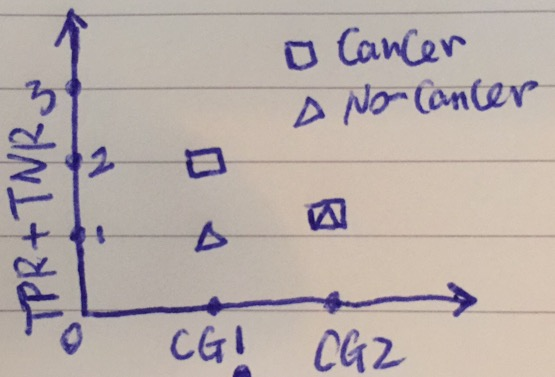 Cancer
No-Cancer
TPR + TNR
3
2
1
0
CG1
CG2